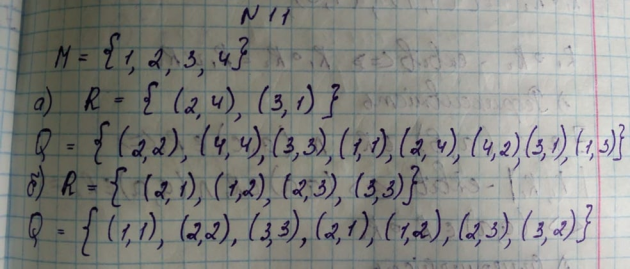 N 11
M = { 1, 2, 3, 4 }
а) R = { (2,4), (3,1) }
Q = { (2,2), (4,4), (3,3), (1,1), (2,4), (4,2) (3,1), (1,3) }
б) R = { (2,1), (1,2), (2,3), (3,3) }
Q = { (1,1), (2,2), (3,3), (2,1), (1,2), (2,3), (3,2) }